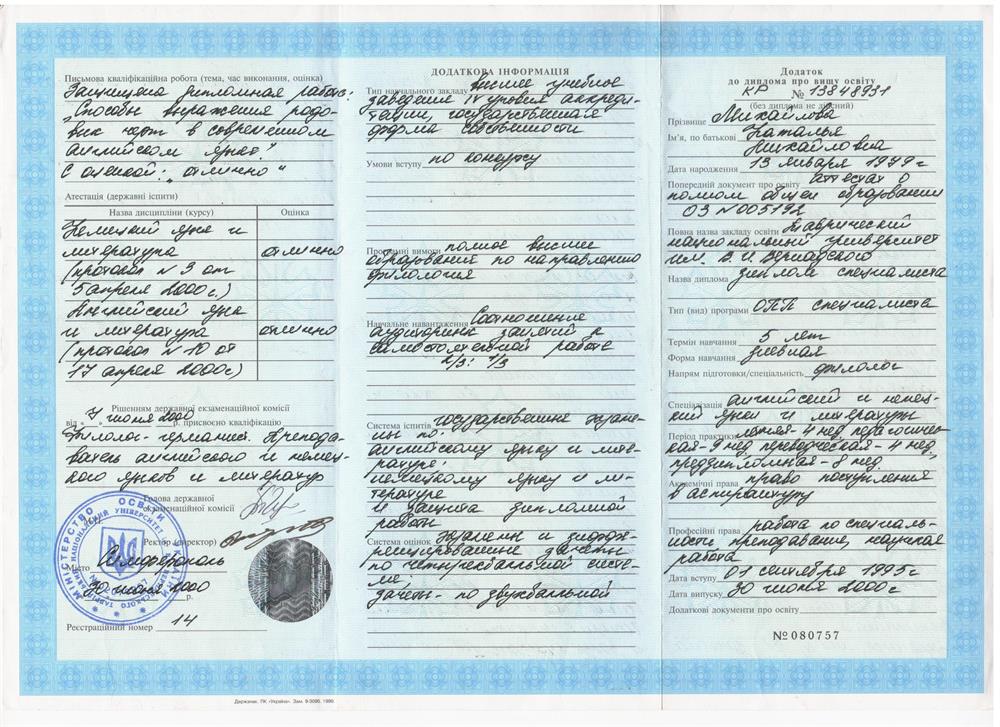 Письмова кваліфікаційна робота (тема, час виконання, оцінка)
Защищена дипломная работа:
„Способы выражения родо-
вых черт в современном
английском языке."
С оценкой: „отлично"
Атестація (державні іспити)
Назва дисципліни (курсу) Оцінка
Немецкий язык и
литература отлично
(протокол N 3 от
5 апреля 2000 г.)
Английский язык
и литература отлично
(протокол N 10 от
17 апреля 2000 г)
Рішенням державної екзаменаційної комісії
від „ 7 июня 2000 р. присвоєно кваліфікацію
Филолог-германист. Препода-
ватель английского и немец-
кого языков и литератур
Голова державної
екзаменаційної комісії
Ректор (директор)
Місто Симферополь
30 июня 2000 р.
Реєстраційний номер 14
МІНІСТЕРСТВО ОСВІТИ УКРАЇНИ
ДОДАТКОВА ІНФОРМАЦІЯ
Тип навчального закладу высшее учебное
заведение IV уровня аккреди-
тации, государственная
форма собственности
Умови вступу по конкурсу
Програмні вимоги полное высшее
образование по направлению
филология
Навчальне навантаження Соотношение
аудиторных занятий к
самостоятельной работе
2/3: 1/3
Система іспитів государственные экзаме-
ны по:
английскому языку и лит-
ературе;
немецкому языку и ли-
тературе
и защита дипломной
работы
Система оцінок Экзамены и диффе-
ренцированные зачеты
по четырехбальной систе-
ме;
зачеты - по двухбальной
Додаток
до диплома про вищу освіту
КР № 13848931
(без диплома не дійсний)
Прізвище Михайлова
Ім'я, по батькові Наталья
Михайловна
Дата народження 13 января 1979 г
Попередній документ про освіту аттестат о
полном общем образовании
ОЗ N 005192
Повна назва закладу освіти Таврический
национальный университет
им. В. И. Вернадского
Назва диплома диплом специалиста
Тип (вид) програми ОПП специалиста
Термін навчання 5 лет
Форма навчання дневная
Напрям підготовки/спеціальність филолог
Спеціалізація английский и немец-
кий языки и литературы
Період практики 4 нед педагогичес-
кая-9 нед, переводческая - 4 нед,
преддипломная - 8 нед.
Академічні права право поступления
в аспирантуру
Професійні права работа по специаль-
ность преподавание, научная
работа
Дата вступу 01 сентября 1995 г
Дата випуску 30 июня 2000 г
Додаткові документи про освіту
№ 080757
Держзнак. ПК «Україна». Зам. 9-3095. 1999.